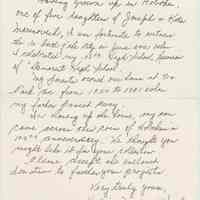 Having grown up in Hoboken,
one of five daughters of Joseph & Kate
I was fortunate to
in June
I celebrated my High School Reunion
of Demarest High School.
My parents owned our home at 500
Park Ave from 1950 to 1981 when
my father passed away.
In clearing up the house, my son
came across this of Hoboken's
100th anniversary. We thought you
might like it for your collection.
Please accept the enclosed
donation to further your projects.
Very truly yours,